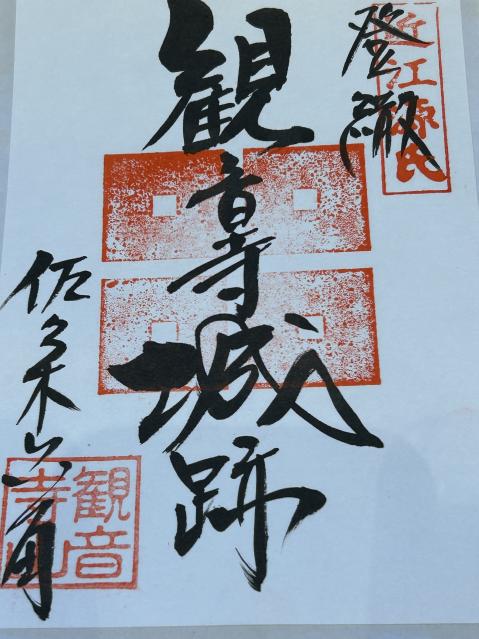 近江源氏
登城
観音寺城跡
佐々木六角
観音
寺